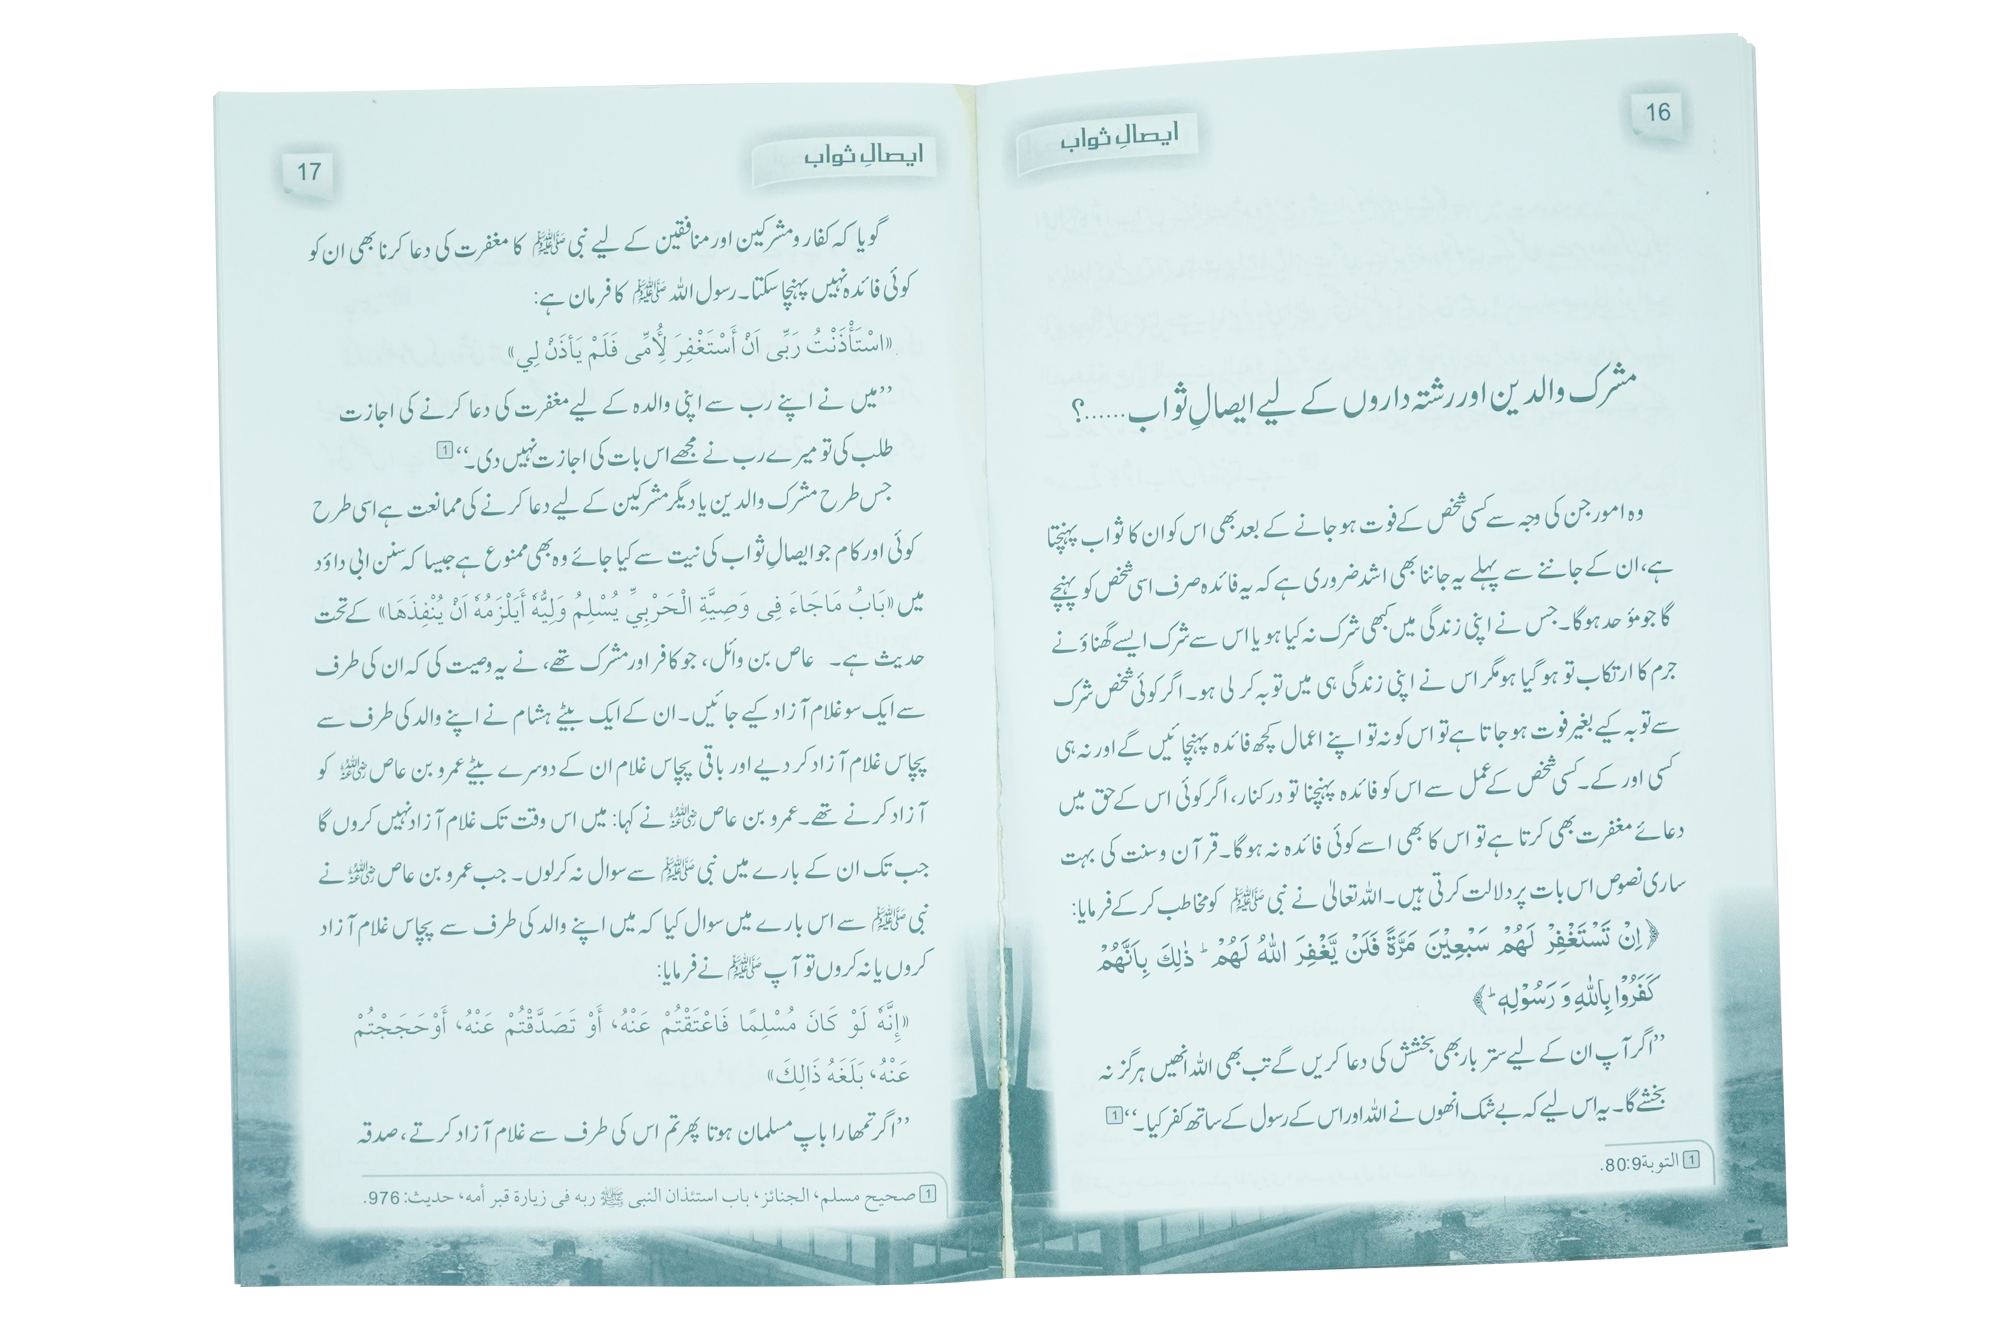 16
ایصالِ ثواب
مشرک والدین اور رشتہ داروں کے لیے ایصالِ ثواب......؟
وہ امور جن کی وجہ سے کسی شخص کے فوت ہو جانے کے بعد بھی اس کو ان کا ثواب پہنچتا
ہے، ان کے جاننے سے پہلے یہ جاننا بھی اشد ضروری ہے کہ یہ فائدہ صرف اسی شخص کو پہنچے
گا جو مؤحد ہوگا۔ جس نے اپنی زندگی میں کبھی شرک نہ کیا ہو یا اس سے شرک ایسے گھناؤنے
جرم کا ارتکاب تو ہو گیا ہو مگر اس نے اپنی زندگی ہی میں توبہ کر لی ہو۔ اگر کوئی شخص شرک
سے توبہ کیے بغیر فوت ہو جاتا ہے تو اس کو نہ تو اپنے اعمال کچھ فائدہ پہنچائیں گے اور نہ ہی
کسی اور کے۔ کسی شخص کے عمل سے اس کو فائدہ پہنچنا تو درکنار، اگر کوئی اس کے حق میں
دعائے مغفرت بھی کرتا ہے تو اس کا بھی اسے کوئی فائدہ نہ ہوگا۔ قرآن و سنت کی بہت
ساری نصوص اس بات پر دلالت کرتی ہیں۔ اللہ تعالیٰ نے نبی ﷺ کو مخاطب کر کے فرمایا:
﴿اِنْ تَسْتَغْفِرْ لَهُمْ سَبْعِيْنَ مَرَّةً فَلَنْ يَّغْفِرَ اللّٰهُ لَهُمْ ؕ ذٰلِكَ بِاَنَّهُمْ
كَفَرُوْا بِاللّٰهِ وَ رَسُوْلِهٖ ؕ﴾
’’اگر آپ ان کے لیے ستر بار بھی بخشش کی دعا کریں گے تب بھی اللہ انھیں ہرگز نہ
بخشے گا۔ یہ اس لیے کہ بے شک انھوں نے اللہ اور اس کے رسول کے ساتھ کفر کیا۔‘‘ 1
1 التوبة 80:9.
ایصالِ ثواب
17
گویا کہ کفار و مشرکین اور منافقین کے لیے نبی ﷺ کا مغفرت کی دعا کرنا بھی ان کو
کوئی فائدہ نہیں پہنچا سکتا۔ رسول اللہ ﷺ کا فرمان ہے:
«اسْتَأْذَنْتُ رَبِّى اَنْ أَسْتَغْفِرَ لِأُمِّى فَلَمْ يَأذَنْ لِي»
’’میں نے اپنے رب سے اپنی والدہ کے لیے مغفرت کی دعا کرنے کی اجازت
طلب کی تو میرے رب نے مجھے اس بات کی اجازت نہیں دی۔‘‘ 1
جس طرح مشرک والدین یا دیگر مشرکین کے لیے دعا کرنے کی ممانعت ہے اسی طرح
کوئی اور کام جو ایصالِ ثواب کی نیت سے کیا جائے وہ بھی ممنوع ہے جیسا کہ سنن ابی داؤد
میں «بَابُ مَاجَاءَ فِى وَصِيَّةِ الْحَرْبِيِّ يُسْلِمُ وَلِيُّهُ أَيَلْزَمُهُ اَنْ يُنْفِذَهَا» کے تحت
حدیث ہے۔ عاص بن وائل، جو کافر اور مشرک تھے، نے یہ وصیت کی کہ ان کی طرف
سے ایک سو غلام آزاد کیے جائیں۔ ان کے ایک بیٹے ہشام نے اپنے والد کی طرف سے
پچاس غلام آزاد کر دیے اور باقی پچاس غلام ان کے دوسرے بیٹے عمرو بن عاص رضی اللہ عنہ کو
آزاد کرنے تھے۔ عمرو بن عاص رضی اللہ عنہ نے کہا: میں اس وقت تک غلام آزاد نہیں کروں گا
جب تک ان کے بارے میں نبی ﷺ سے سوال نہ کر لوں۔ جب عمرو بن عاص رضی اللہ عنہ نے
نبی ﷺ سے اس بارے میں سوال کیا کہ میں اپنے والد کی طرف سے پچاس غلام آزاد
کروں یا نہ کروں تو آپ ﷺ نے فرمایا:
«إِنَّهُ لَوْ كَانَ مُسْلِمًا فَاعْتَقْتُمْ عَنْهُ، أَوْ تَصَدَّقْتُمْ عَنْهُ، أَوْحَجَجْتُمْ
عَنْهُ، بَلَغَهُ ذَالِكَ»
’’اگر تمھارا باپ مسلمان ہوتا پھر تم اس کی طرف سے غلام آزاد کرتے، صدقہ
1 صحيح مسلم، الجنائز، باب استئذان النبى ﷺ ربه فى زيارة قبر أمه، حديث: 976.